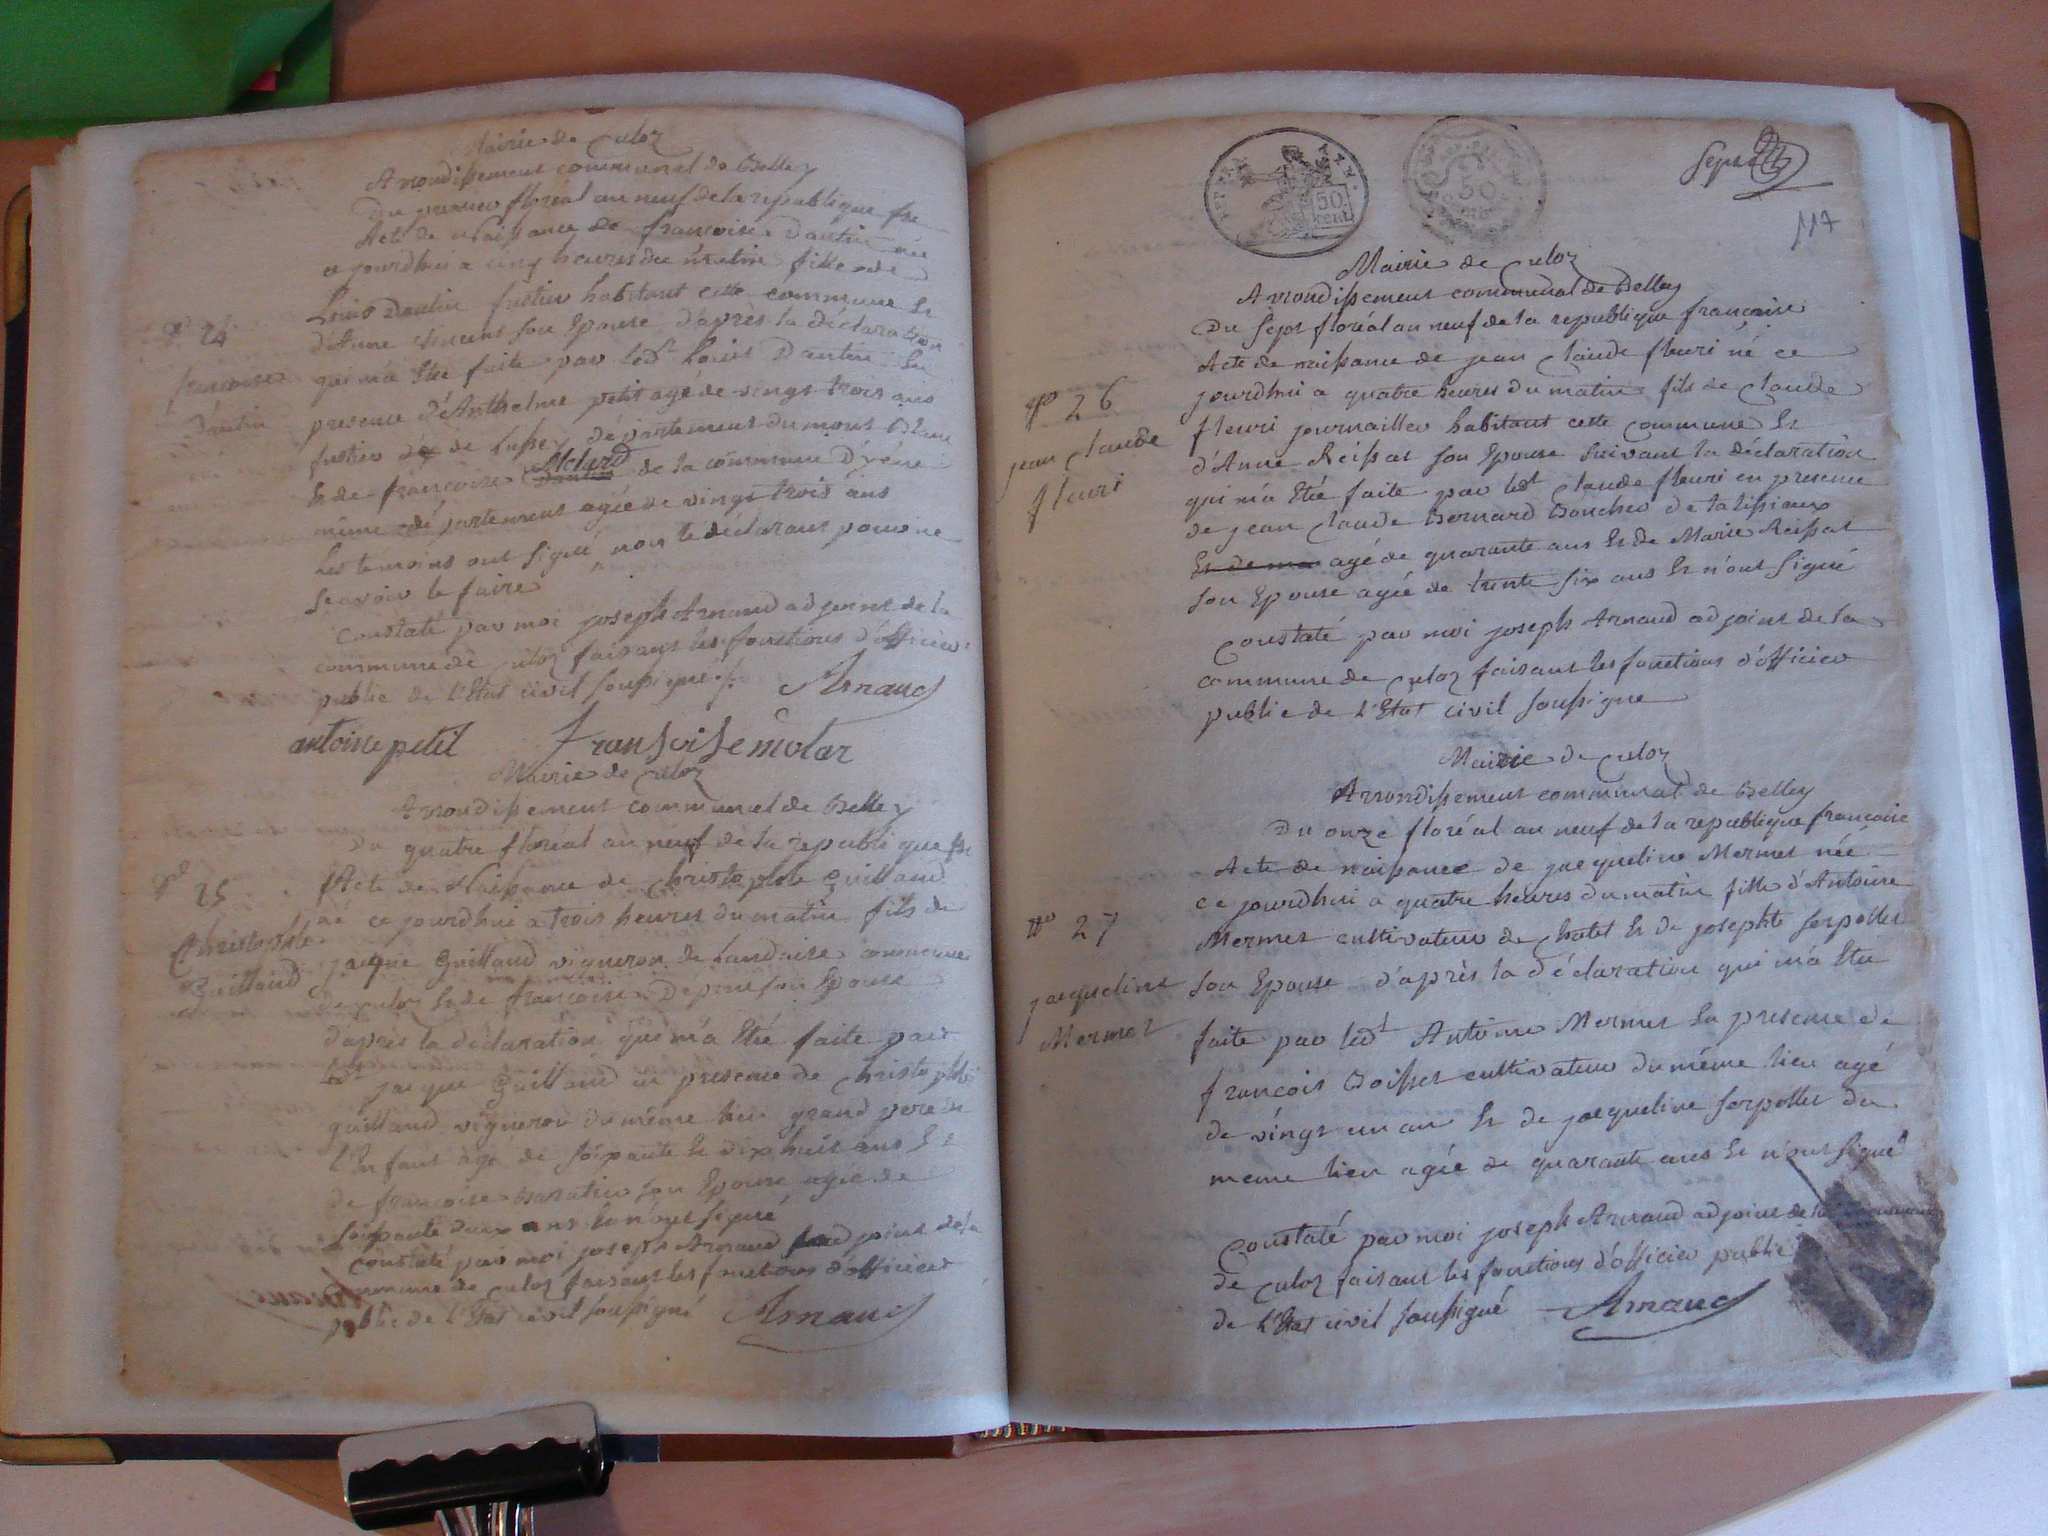 Mairie de Culoz
Arrondissement communal de Belley
Du premier floréal an neuf de la republique fse
Acte de Naissance de françoise Dantin née
ce jourdhui a cinq heures du matin fille de
Louis Dantin fustier habitant cette commune Et
d'Anne vincent son Epouse d'apres la déclaration
qui m'a Etée faite par led.t Louis Dantin En
presence d'Anthelme petit agé de vingt trois ans
fustier de de Lussey département du mont Blanc
Et de françoise Molard de la commune D'yéne
même département agée de vingt trois ans
Les temoins ont Signé non le déclarant pour ne
Scavoir le faire
Constaté par moi joseph Arnaud adjoint de la
commune de Culoz faisant les fonctions d'officier
public de L'Etat civil Soussigné ./. Arnaud
antoine petit franSoiSe molar
N.o 24
francoise
Dantin
Mairie de Culoz
Arrondissement communal de Belley
Du quatre floréal an neuf de la republique fse
Acte de Naissance de Christophle Guilland
né ce jourdhui a trois heures du matin fils de
jacque Guilland vigneron de Landaise commune
de Culoz Et de françoise son Epouse
d'après la déclaration qui m'a Eté faite par
led.t jacque Guilland en presence de Christophle
guilland vigneron du même lieu grand pere de
l'Enfant agé de soixante Et dix huit ans Et
de francoise son Epouse agée de
soixante deux ans Et n'ont signé
constaté par moi joseph Arnaud adjoint de la
commune de Culoz faisant les fonctions d'officier
public de l'Etat civil Soussigné Arnaud
N.o 25
Christophle
Guilland
50
cent.
50
Sept
117
Mairie de Culoz
Arrondissement communal de Belley
Du Sept floréal an neuf de la republique françoise
Acte de naissance de jean Claude fleuri né ce
jourdhui a quatre heures du matin fils de Claude
fleuri journaillier habitant cette commune Et
d'Anne Reissat son Epouse Suivant la déclaration
qui m'a Etée faite par led.t Claude fleuri en presence
de jean Claude Bernard Boucher de talissieux
Et de ma agé de quarante ans Et de Marie Reissat
son Epouse agée de trente six ans Et n'ont Signé
Constaté par moi joseph Arnaud adjoint de la
commune de Culoz faisant les fonctions d'officier
public de L'Etat civil Soussigné
N.o 26
jean Claude
fleuri
Mairie de Culoz
Arrondissement communal de Belley
Du onze floréal an neuf de la republique francoise
Acte de naissance de jacqueline Mermet née
ce jourdhui a quatre heures du matin fille d'Antoine
Mermet cultivateur de Chatel Et de josephte Serpollet
son Epouse d'après la déclaration qui m'a Etée
faite par led.t Antoine Mermet En presence de
françois Boisset cultivateur du même lieu agé
de vingt un an Et de jacqueline Serpollet du
meme lieu agée de quarante ans Et n'ont Signé
Constaté par moi joseph Arnaud adjoint de la commune
de Culoz faisant les fonctions d'officier public
de L'Etat civil Soussigné Arnaud
N.o 27
jacqueline
Mermet